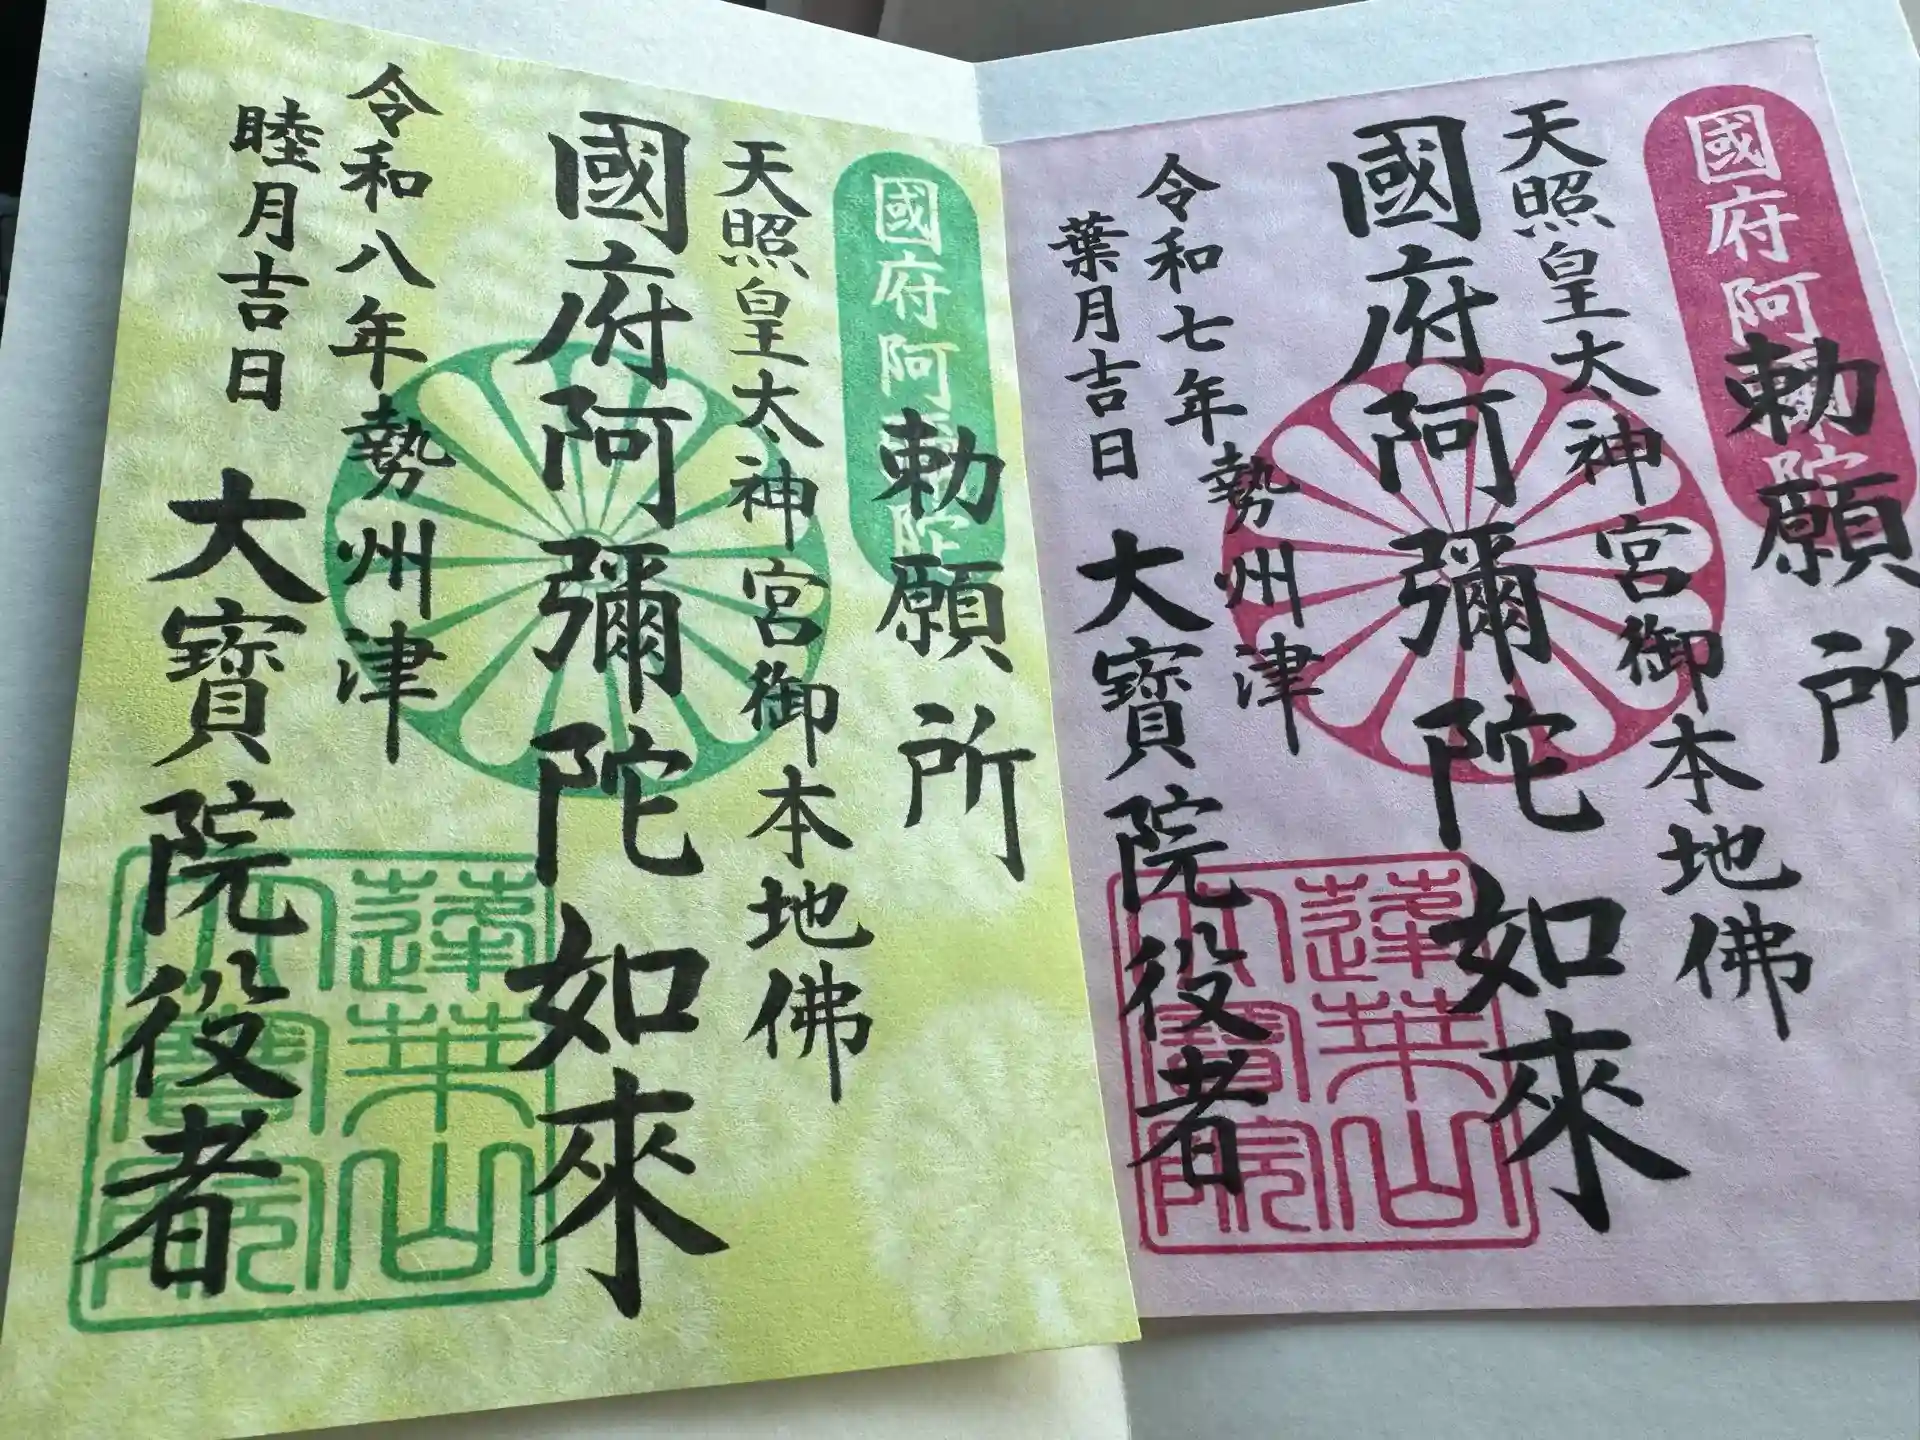 國府阿彌陀
勅願所
天照皇太神宮御本地佛
國府阿彌陀如來
令和七年
葉月吉日
勢州津
大寶院役者
蓮華山
大寶院
國府阿彌陀
勅願所
天照皇太神宮御本地佛
國府阿彌陀如來
令和八年
睦月吉日
勢州津
大寶院役者
蓮華山
大寶院